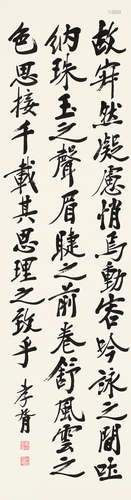 故寂然凝慮悄焉動容吟詠之間吐
納珠玉之聲眉睫之前卷舒風雲之
色思接千載其思理之致乎 李膺